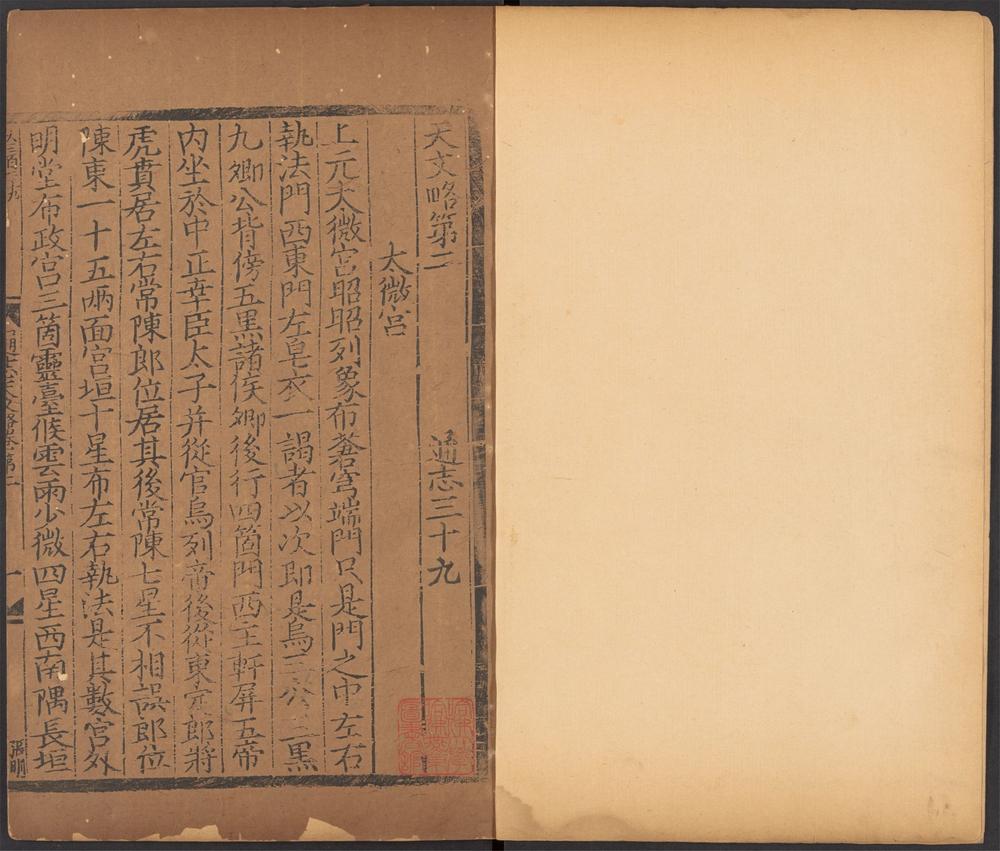 天文略第二　通志三十九
太微宮
上元太微宮昭昭列象布蒼穹端門只是門之中左右
執法門西東門左皂衣一謁者以次即是烏三公三黑
九卿公背傍五黑諸侯卿後行四箇門西主軒屏五帝
内坐於中正幸臣太子并從官烏列帝後從東定郎將
虎賁居左右常陳郎位居其後常陳七星不相誤郎位
陳東一十五兩面宮垣十星布左右執法是其數宮外
明堂布政宮三箇靈臺候雲雨少微四星西南隅長垣